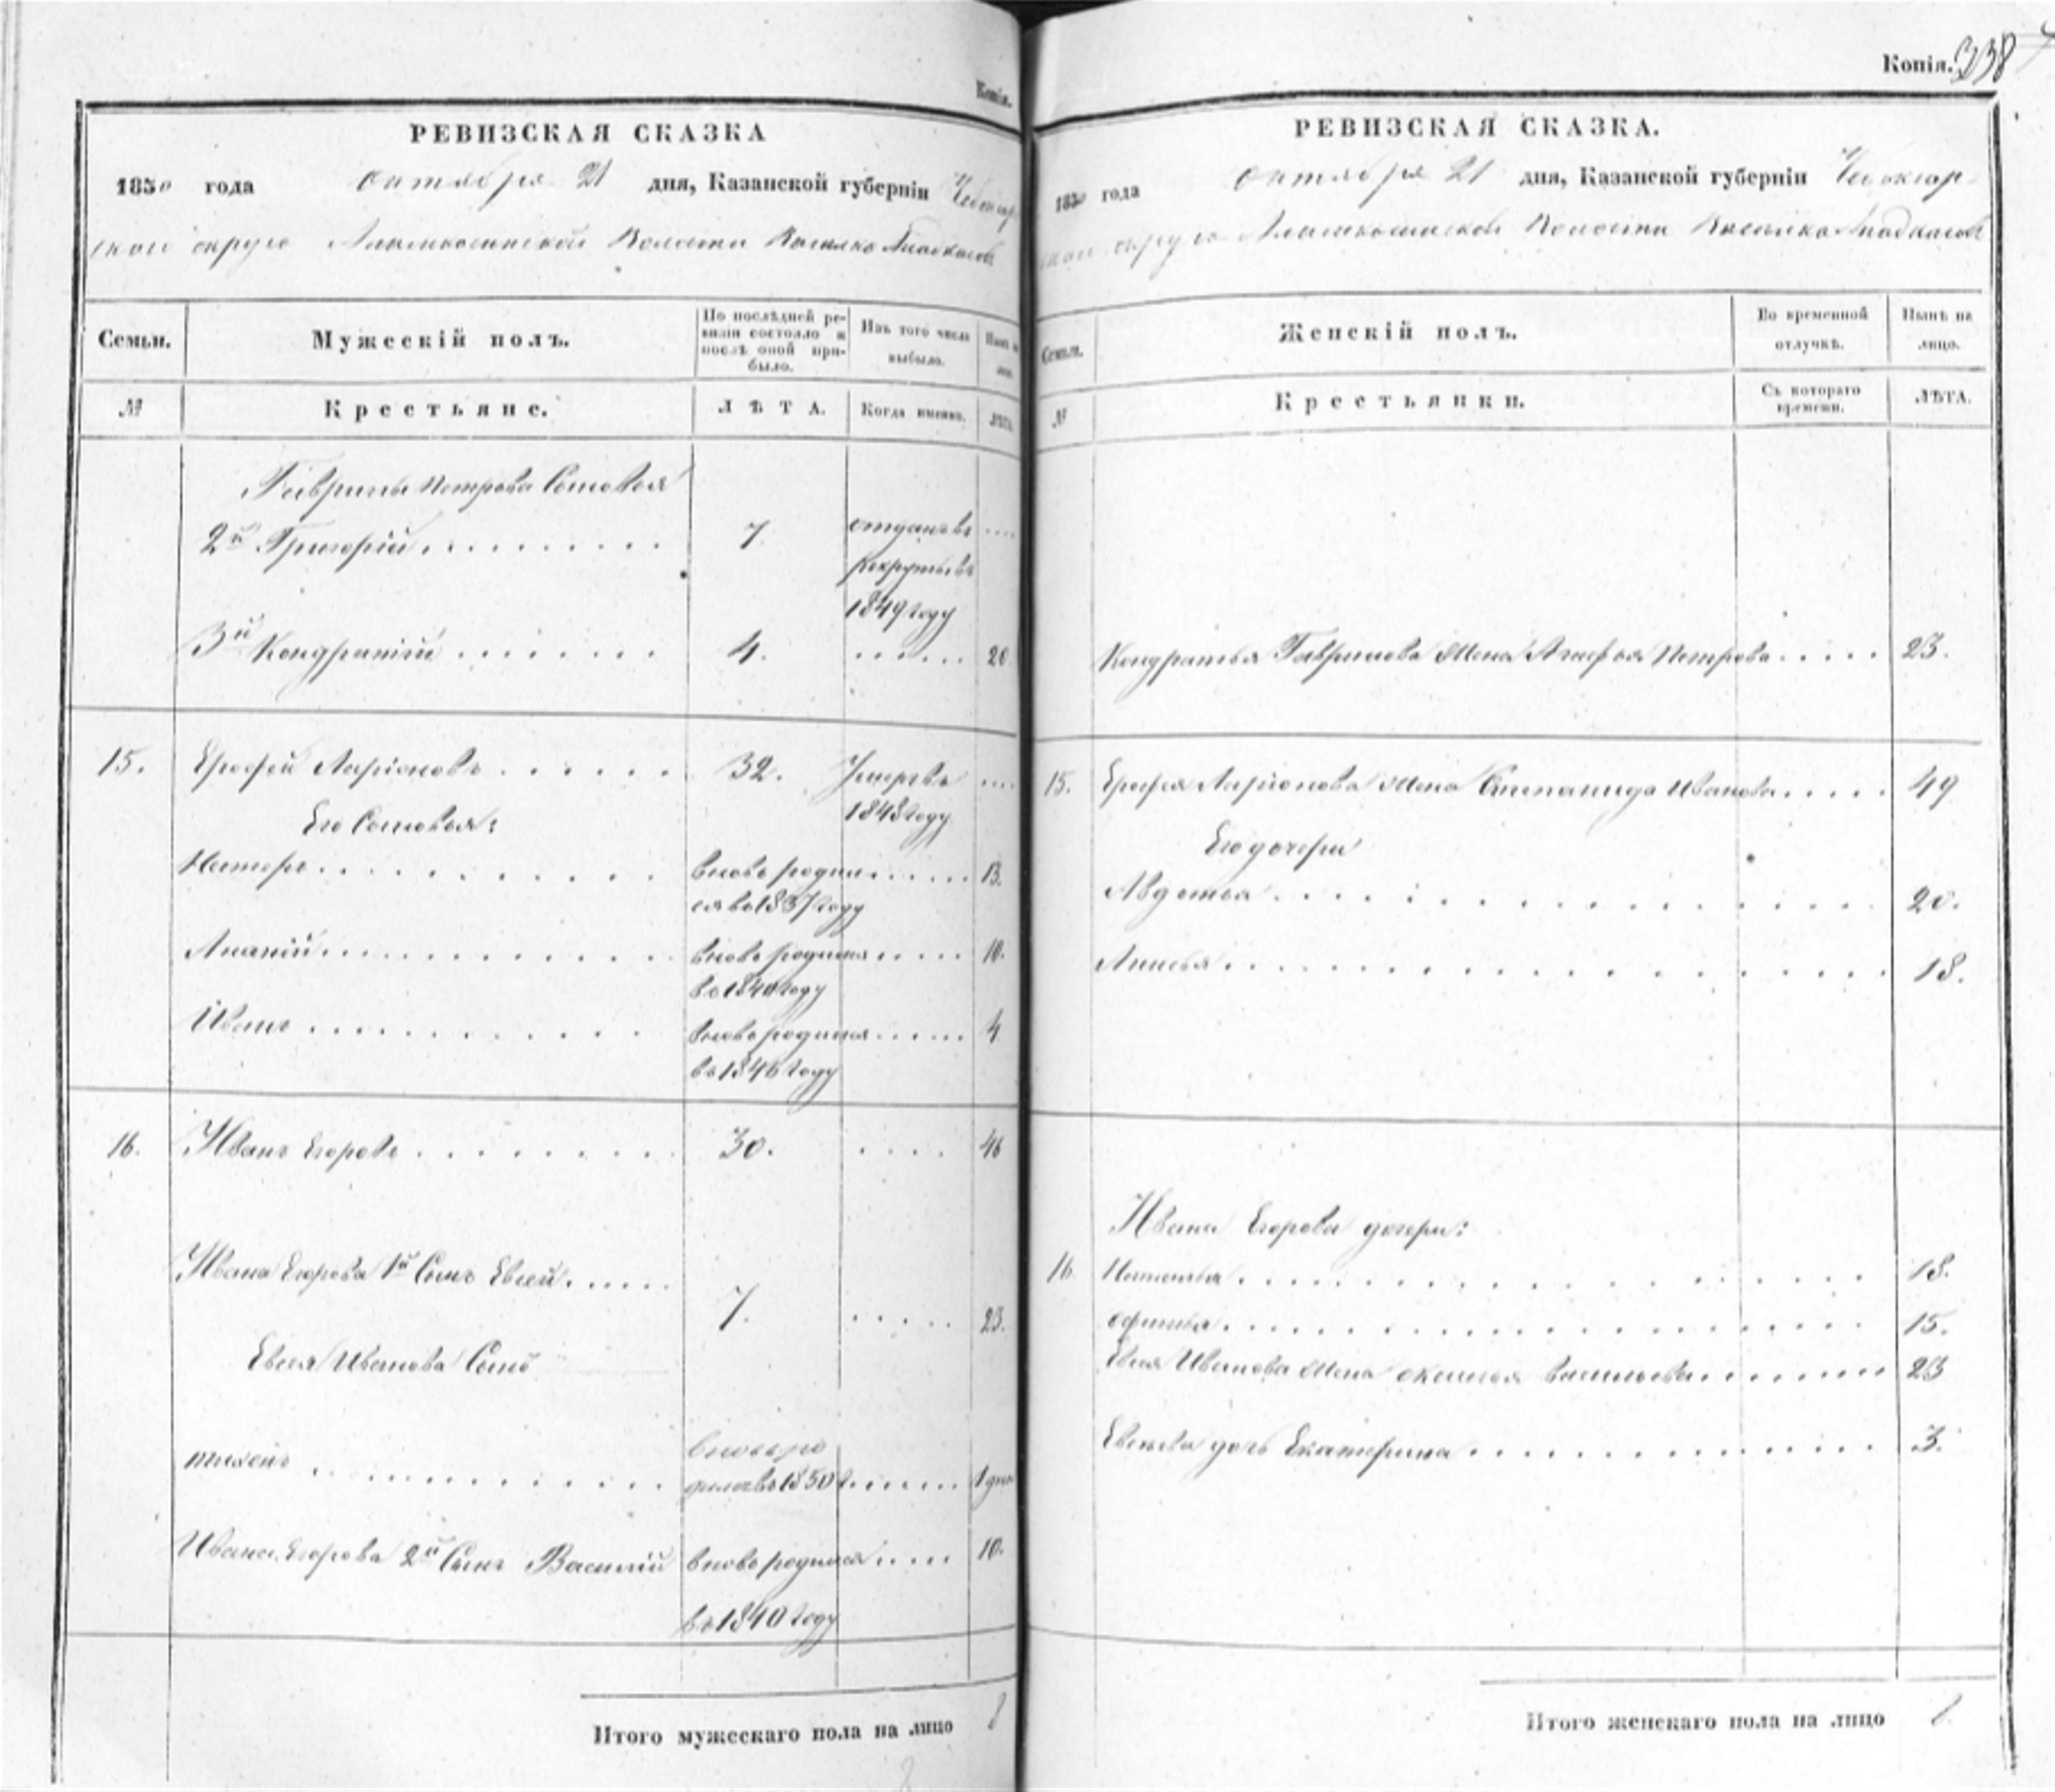 Копія.
РЕВИЗСКАЯ СКАЗКА
1850 года октября 21 дня, Казанской губерніи Чебоксар
скаго округа Волости
Семьи. Мужескій полъ. По послѣдней ревизіи состояло и послѣ оной прибыло. Изъ того числа выбыло. Нынѣ на лицо.
№ Крестьяне. ЛѢТА. Когда именно. ЛѢТА.
Гаврилы Петрова Сыновья
2й Григорій 7. отданъ въ
рекруты въ
1849 году
3й Кондратій 4. 20
15. Ерофей Ларіоновъ 32. Умеръ въ
1843 году
Его Сыновья:
Нестеръ вновь родил 13.
ся въ 1837 году
Ананій вновь родился 10.
въ 1840 году
Иванъ вновь родился 4
въ 1846 году
16. Иванъ Егоровъ 30. 46
Ивана Егорова 1й Сынъ Евсей
7. 23.
Евсея Иванова Сынъ
вновь ро
дился въ 1850
Ивана Егорова 2й Сынъ Василій вновь родился 10.
въ 1840 году
Итого мужескаго пола на лицо 8
Копія. 338
РЕВИЗСКАЯ СКАЗКА.
1850 года октября 21 дня, Казанской губерніи Чебоксар
скаго округа Волости
Семьи. Женскій полъ. Во временной отлучкѣ. Нынѣ на лицо.
№ Крестьянки. Съ котораго времени. ЛѢТА.
Кондратья Гаврилова Жена Агафья Петрова 23.
15. Ерофея Ларіонова Жена Степанида Иванова 49
Его дочери
Авдотья 20.
Анисья 18.
Ивана Егорова дочери:
16 Наталья 18.
офимья 15.
Евсея Иванова Жена оксинья васильева 23
Евсеева дочь Екатерина 3.
Итого женскаго пола на лицо 8.